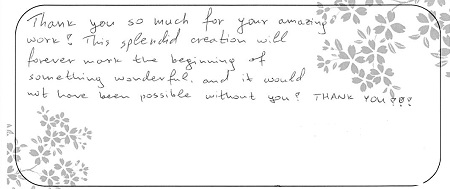 Thank you so much for your amazing
work! This splendid creation will
forever mark the beginning of
something wonderful. and it would
not have been possible without you! THANK YOU!!!